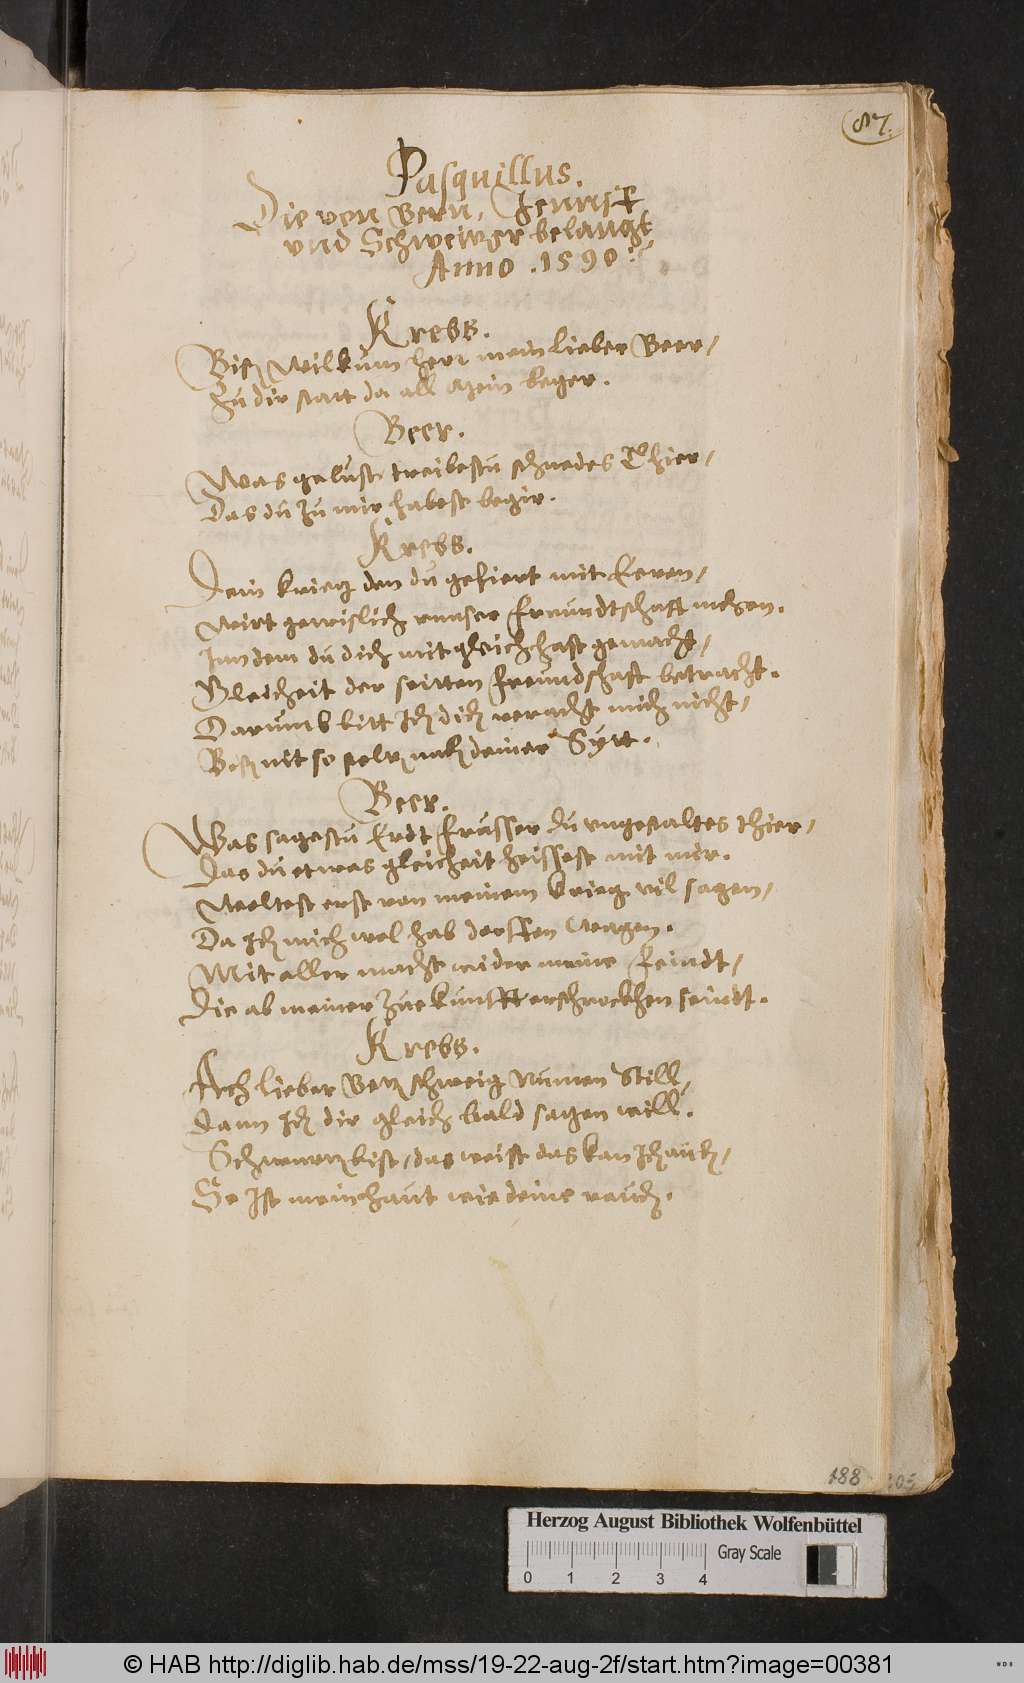 87.
Pasquillus.
Die von Bern, Jennff
und Schweitzer belangt
Anno .1590.
Krebs.
Bis Wilkum herr mein lieber Beer,
Zu dir statt da all mein beger.
Beer.
Was gelust treibestu schnedes Thier,
Das du zu mir habest begir.
Krebs.
Dein krieg den du gefiert mit Eeren,
Wirt gewislich unnser freundtschafft mehren.
Inn dem du dich mit gleichhafft gemacht,
Gleicheit der seitten freundschafft betracht.
Darumb bitt Ich dich veracht mich nicht,
nit so nach deiner Sytt.
Beer.
Was sagestu Erdt frässer du ungestaltes thier,
Das du etwas gleicheit heissest mit mir.
Woltest erst von meinem krieg vil sagen,
Da Ich mich wol hab dörffen wagen.
Mit aller macht wider meine feindt,
Die ab meiner Zuekunfft erschrockhen seindt.
Krebs.
Ach lieber Betz schweig nunen still,
Dann Ich dir gleich bald sagen will.
Schwartz bist, das weist das kan Ich auch,
So Ist mein haut wie deine rauch.
188
Herzog August Bibliothek Wolfenbüttel
Gray Scale
0 1 2 3 4
© HAB http://diglib.hab.de/mss/19-22-aug-2f/start.htm?image=00381